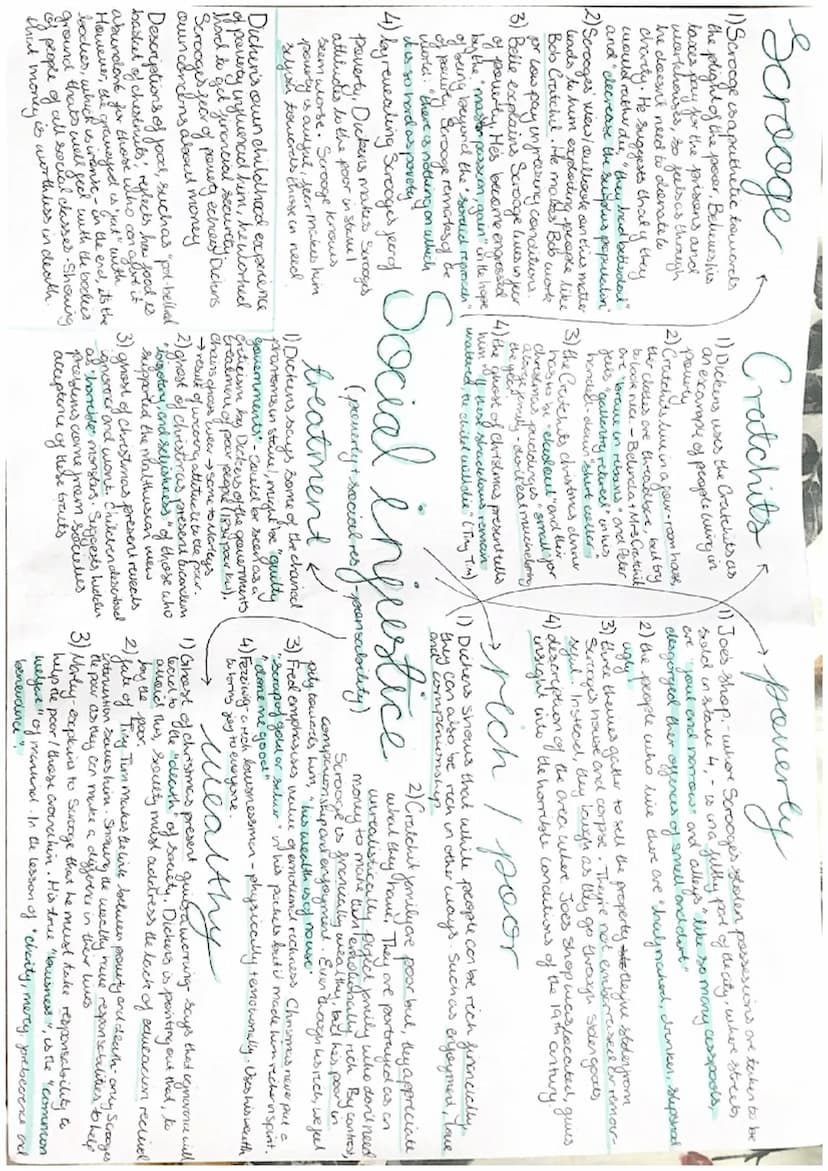 Scrooge
1) Scrooge is apathetic towards
the plight of the poor. Believes his
taxes pay for the prisons and
workhouses, so feels as though
he doesn't need to donate to
charity. He suggests that if they
would rather die, "they had better do it
and decrease the surplus population"
2) Scrooges view/outlook on this matter
leads to him exploiting people like
Bob Cratchit. He makes Bob work
for low pay in freezing conditions.
3) Belle explains Scrooge lives in fear
of poverty. He's become engrossed
by the "master passion gain" in the hope
of being beyond the "sordid reproach"
of poverty. Scrooge remarks of the
world: "there is nothing on which
it is so hard as poverty
4) by revealing Scrooge's fear of
poverty, Dickens makes Scrooges
attitudes to the poor in stave 1
seem worse. Scrooge knows
poverty is awful, fear makes him
selfish towards those in need
Dickens own childhood experience
of poverty influenced him, he worked
hard to get financial security.
Scrooges fear of poverty echoes Dickens
own concerns about money
Descriptions of food, such as "pot-bellied
basket of chestnuts", reflects how food is
abundant for those who can afford it
However, the graveyard is "fat" with
bodies, which is ironic - in the end, its the
ground thats well fed with the bodies
of people of all social classes. Showing
that money is worthless in death.
Cratchits
1) Dickens uses the Cratchits as
an example of people living in
poverty
2) Cratchits live in a four-room house,
their clothes are threadbare, but try
to look nice - Belinda + Mrs Cratchit
are "brave in ribbons" and Peter
feels "gallantly attired" in his
handed-down "shirt collar"
3) the Cratchits christmas dinner
has to be "eked out" and their
christmas pudding is "small for
a large family" - do treat much
the goose
4) the ghost of christmas present tells
him if "shadows remain
unaltered, the child will die" (Tiny Tim)
Social injustice
(poverty + social responsibility)
treatment
1) Dickens, says some of the chained
phantoms in stave 1 might be "guilty
governments" - could be seen as a
criticism by Dickens of the governments
treatment of poor people (1834 poor law).
→ result of uncaring attitude to the poor.
2) ghost of christmas present
"forgetting and selfishness" of those who
supported the Malthusian view
3) ghost of christmas present reveals
ignorance and want. Children described
as "horrible" monsters. Suggests hidden
problems come from societies
acceptance of these traits
poverty
1) Joe's shop - where Scrooge's stolen possessions are taken to be
sold in stave 4, - is in a filthy part of the city, where streets
are "foul and narrow" and alleys "like so many cesspools,
disgorged their offences of smell and dirt"
2) the people who live there are "half naked, drunken, slipshod
ugly
3) three thieves gather to sell the property they've stolen from
Scrooge's house and corpse. They're not embarrassed or remor-
seful. Instead, they laugh as they go through stolen goods,
4) description of the area where Joe's shop was located, gives
insight into the horrible conditions of the 19th century
rich / poor
1) Dickens shows that while people can be rich financially
they can also be rich in other ways. Such as enjoyment, love
and companionship
2) Cratchit family are poor but, they appreciate
what they have. They are portrayed as an
unrealistically perfect family who don't need
money to make them emotionally rich. By contrast,
Scrooge is financially wealthy, but he's poor in
companionship and enjoyment. Even though he's rich, we feel
pity towards him, "his wealth is of no use"
3) Fred emphasises value of emotional richness. Christmas never put a
"scrap of gold or silver" in his pockets but it made him richer in spirit.
"done me good"
4) Fezziwig - a rich businessman - physically + emotionally. Uses his wealth
to bring joy to everyone.
wealthy
1) Ghost of christmas present gives a warning - says that ignorance will
lead to the "death" of society. Dickens is pointing out that, to
avoid this, society must address the lack of education recieved
by the poor.
2) fate of Tiny Tim makes the link between poverty and death - only Scrooges
intervention saves him. Showing the wealthy have responsibilities to help
the poor as they can make a difference in their lives
3) Marley - explains to Scrooge that he must take responsability to
help the poor / those around him. His true "business", is the "common
welfare" of mankind. In the lesson of "charity, mercy, forbearance and
benevolence".